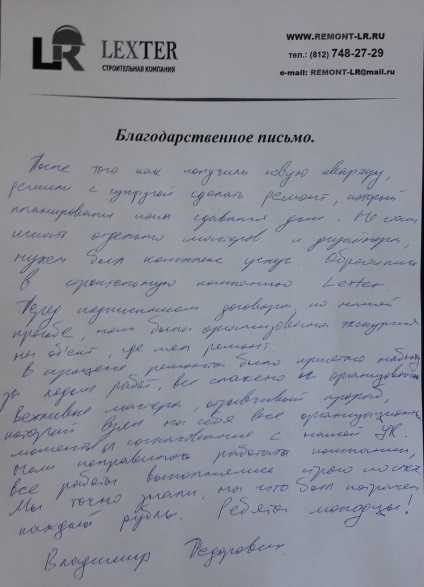 LR LEXTER
СТРОИТЕЛЬНАЯ КОМПАНИЯ
WWW.REMONT-LR.RU
тел.: (812) 748-27-29
e-mail: REMONT-LR@mail.ru
Благодарственное письмо.
После того как получили новую квартиру,
решили с супругой сделать ремонт, который
планировали пока сдавался дом. Не стали
искать отдельно мастеров и дизайнера,
нужен был комплекс услуг. Обратились
в строительную компанию Lexter.
Перед подписанием договора, по нашей
просьбе, нам была организована экскурсия
на объект, где шел ремонт
В процессе ремонта было приятно наблюд
за ходом работ, все слажено и организован
Вежливые мастера, отзывчивый прораб,
который взял на себя все организационн
моменты и согласования с нашей УК.
Нам понравилось работать компании,
все работы выполнялись строго по смет
Мы точно знали, на что был потрачен
каждый рубль. Ребята молодцы!
Владимир Федорович.